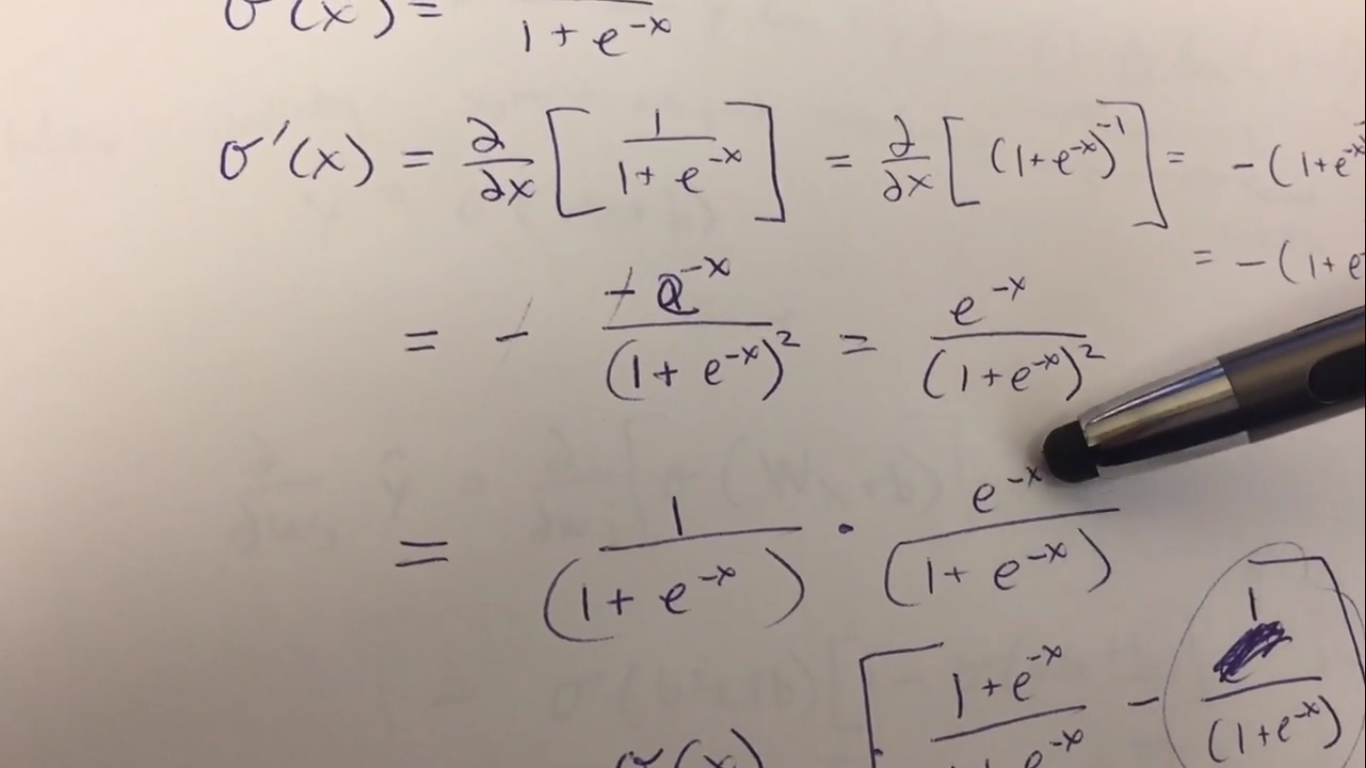 σ(x) = 1 + e^{-x}
σ'(x) = ∂/∂x [ 1/(1 + e^{-x}) ] = ∂/∂x [ (1+e^{-x})^{-1} ] = -(1+e^{-x})
= - (-e^{-x})/(1 + e^{-x})^2 = e^{-x}/(1+e^{-x})^2 = -(1+e
= 1/(1 + e^{-x}) · e^{-x}/(1 + e^{-x})
σ(x) [ (1+e^{-x})/(1+e^{-x}) - 1/(1+e^{-x}) ]